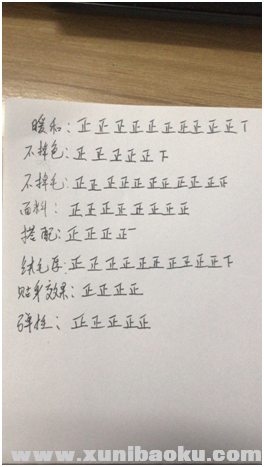 暖和：正正正正正正正正正正丅
不掉色：正正正正正下
不掉毛：正正正正正正正正正正
面料：正正正正正正正正
搭配：正正正正一
绒毛厚：正正正正正正正正正正下
贴身效果：正正正正
弹性：正正正正正
www.xunibaoku.com